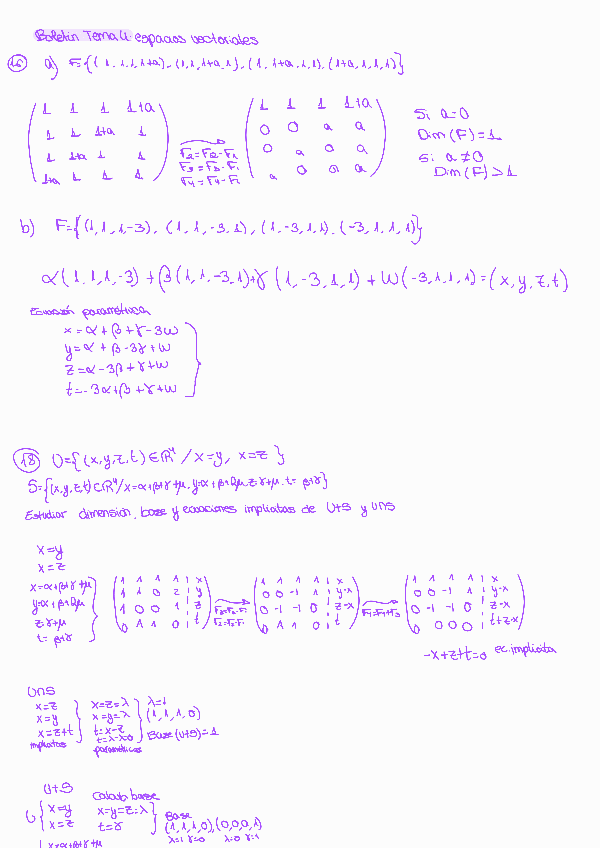 Boletín Tema 4: espacios vectoriales
16 a) F={(1,1,1,1+a),(1,1,1+a,1),(1,1+a,1,1),(1+a,1,1,1)}
1 1 1 1+a
1 1 1+a 1
1 1+a 1 1
1+a 1 1 1
F2=F2-F1
F3=F3-F1
F4=F4-F1
1 1 1 1+a
0 0 a a
0 a 0 a
a 0 0 a
Si a=0
Dim(F)=1
Si a≠0
Dim(F)>1
b) F={(1,1,1,-3), (1,1,-3,1), (1,-3,1,1), (-3,1,1,1)}
α(1,1,1,-3)+β(1,1,-3,1)+γ(1,-3,1,1)+ω(-3,1,1,1)=(x,y,z,t)
Ecuación paramétrica
x=α+β+γ-3ω
y=α+β-3γ+ω
z=α-3β+γ+ω
t=-3α+β+γ+ω
18 U={(x,y,z,t)∈R⁴/x=y, x=z}
S={(x,y,z,t)⊂R⁴/x=α+β+γ+μ, y=α+β+2μ, z=γ+μ, t=β+γ}
Estudiar dimensión, base y ecuaciones implícitas de U+S y U∩S
x=y
x=z
x=α+β+γ+μ
y=α+β+2μ
z=γ+μ
t=β+γ
1 1 1 1 x
1 1 0 2 y
1 0 0 1 z
0 1 1 0 t
1 1 1 1 x
0 0 -1 1 y-x
0 -1 -1 0 z-x
0 1 1 0 t
1 1 1 1 x
0 0 -1 1 y-x
0 -1 -1 0 z-x
0 0 0 0 t+z-x
-x+z+t=0 ec. implícita
U∩S
x=z
x=y
x=z+t
implícitas
x=z=λ
x=y=λ
t=x-z
t=λ-λ=0
paramétricas
λ=1
(1,1,1,0)
Base(U+S)=1
U+S
Calculo base
U
x=y
x=z
x=y=z=λ
t=γ
Base
(1,1,1,0),(0,0,0,1)
λ=1 γ=0 λ=0 γ=1
x=α+β+γ+μ